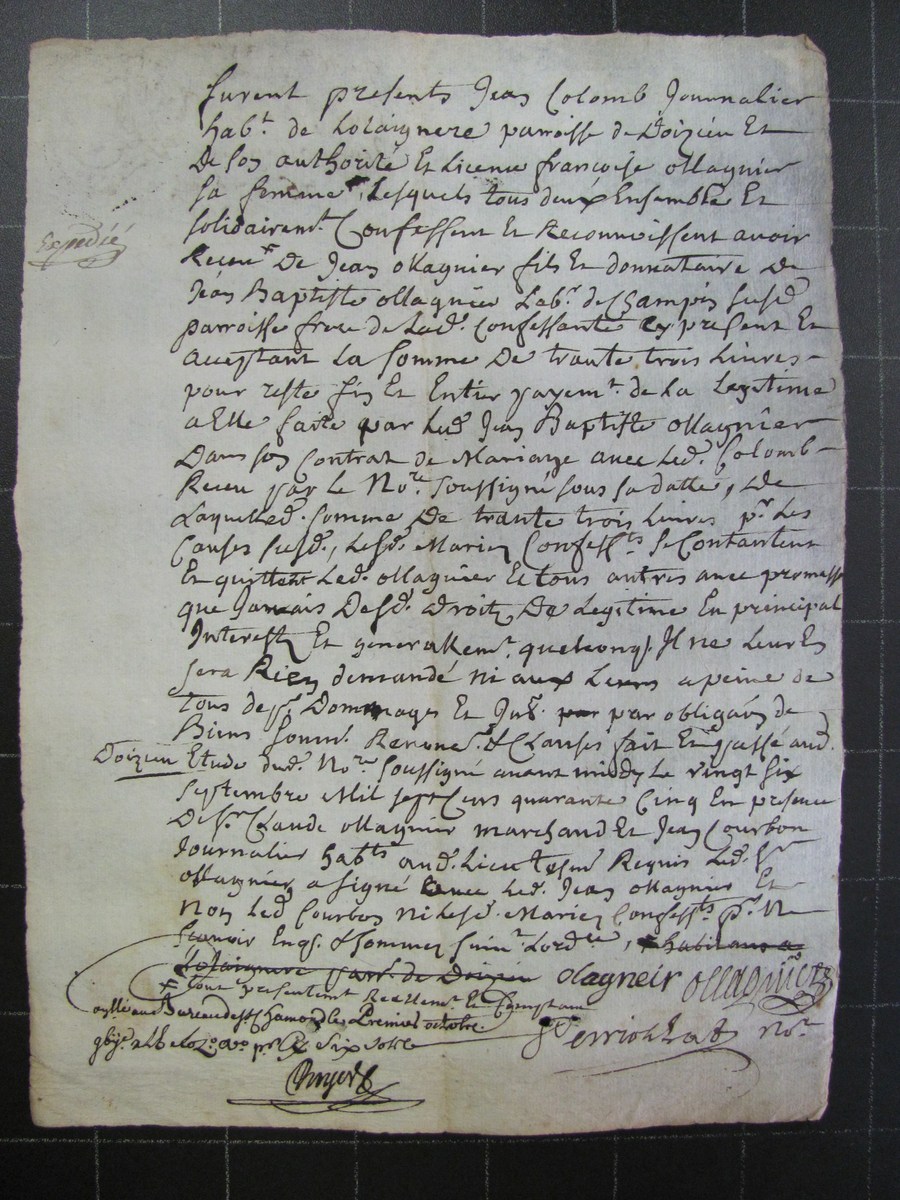 furent presents Jean Colomb Journalier
habt. de Lolaignere parroisse de Doizieu Et
De son authorité Et Licence françoise ollagnier
sa femme, Lesquels tous deux Ensemble Et
solidairemt. Confessent Et Reconnoissent avoir
Expedié
Receu + De Jean ollagnier fils Et donnataire De
Jean Baptiste ollagnier Labr. de Champis susd.
parroisse frere de Lad. Confessante cy present Et
acceptant La somme De trante trois Livres
pour reste fin Et Entier payemt. de La Legitime
a Elle faite par Led. Jean Baptiste ollagnier
Dans son Contrat de Mariage avec Led. Colomb
Receu par Le Nore. soussigné sous sa datte, De
Laquelled. somme De trante trois Livres pr. Les
Causes susd., Lesd. Mariez Confessts. se Contantent
En quittent Led. ollagnier Et tous autres avec promesse
que Jamais Desd. droitz De Legitime En principal
Interestz Et generallemt. quelconq. Il ne Leur En
sera Rien demandé ni aux Leurs a peine de
tous desp. Dommages Et Int. par par obligaon de
Biens soum. Renonc. & Clauses fait Et passé aud.
Doizieu Etude dud. Nore. soussigné avant midy Le vingt six
septembre Mil sept Cens quarante Cinq En presence
De sr. Claude ollagnier marchand Et Jean Courbon
Journalier habts. aud. Lieu tesm. Requis Led. sr.
ollagnier a signé avec Led. Jean ollagnier Et
Non Led. Courbon ni Lesd. Mariez Confessts. pr. Ne
sçavoir Enq. & sommez suivt. Lordce, + habitans a
Lolaignere parr. de Doizieu olagneir ollagnier
+ tout presentemt. Reellemt. Et Comptant
au Bureau de st. Chamond le Premier octobre
six
Nore.